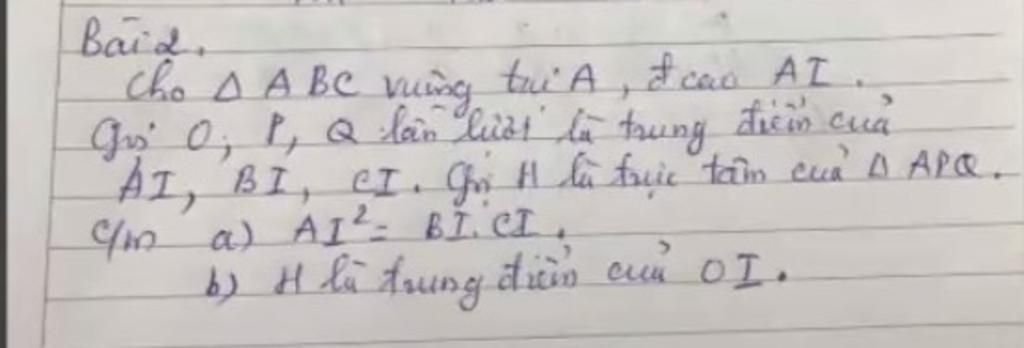 Bài 2.
Cho Δ ABC vuông tại A, đ cao AI.
Gọi O, P, Q lần lượt là trung điểm của
AI, BI, CI. Gọi H là trực tâm của Δ APQ.
c/m a) AI² = BI.CI.
b) H là trung điểm của OI.